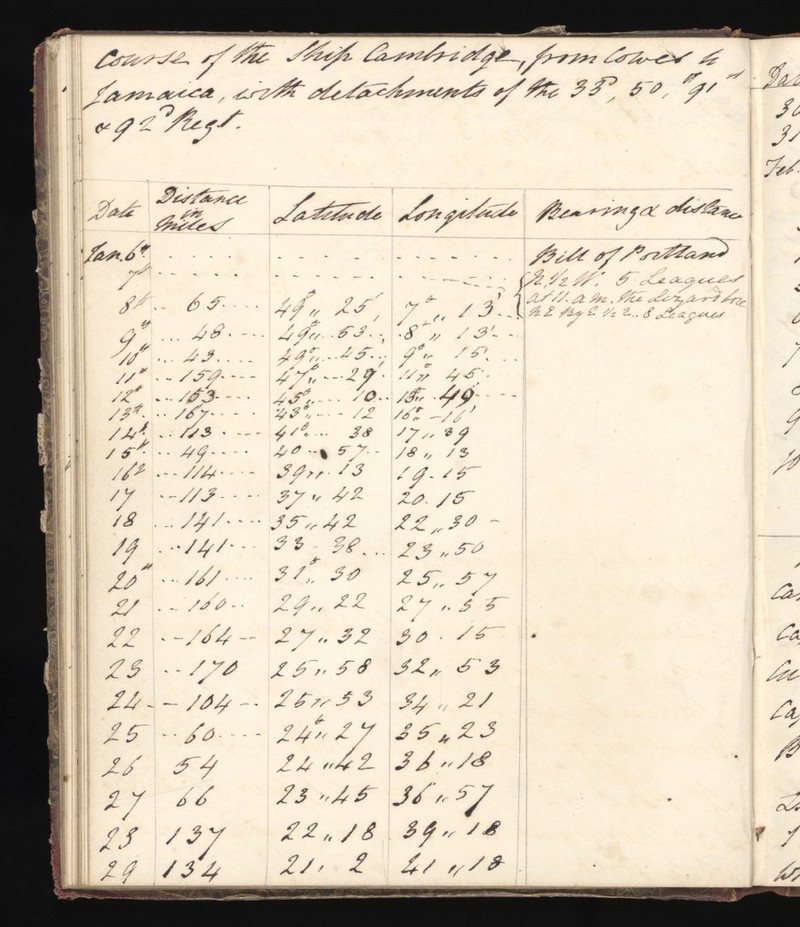 Course of the Ship Cambridge, from Cowes to
Jamaica, with detachments of the 33d, 50, 91st
& 92d Regt.
Date Distance in Miles Latitude Longitude Bearing & distance
Jan. 6th .... ...... ...... Bill of Portland
7th ..... ...... ...... N. 1/2 W. 5 Leagues
8th .. 65 .... 49° " 25' 7° " 13' at 11. a.m. the Lizard bore
N E By E 1/2 E .. 8 Leagues
9th ... 48 .... 49° " 53 .. 8° " 13'
10th ... 43 .... 49° " 45 .. 9° " 15'
11th .. 159 .... 47° " 29' 11° " 45
12th .. 153 .... 45° " 10 .. 13° " 49'
13th .. 167 .... 43° " 12 16° - 16'
14th .. 113 .... 41° " 38 17 " 39
15th .. 49 .... 40 .. 57 18 " 13
16 .. 114 .... 39 " 13 19 . 15
17 .. 113 .... 37 " 42 20 . 15
18 .. 141 .... 35 " 42 22 " 30
19 .. 141 ... 33 - 38 ... 23 " 50
20th ... 161 .... 31° " 30 25 " 57
21 .. 160 .. 29 " 22 27 " 55
22 .. 164 .. 27 " 32 30 . 15
23 .. 170 25 " 58 32 " 53
24 .. 104 .. 25 " 53 34 " 21
25 .. 60 .... 24° " 27 35 " 23
26 54 24 " 42 36 " 18
27 66 23 " 45 36 " 57
28 137 22 " 18 39 " 18
29 134 21 " 2 41 " 18